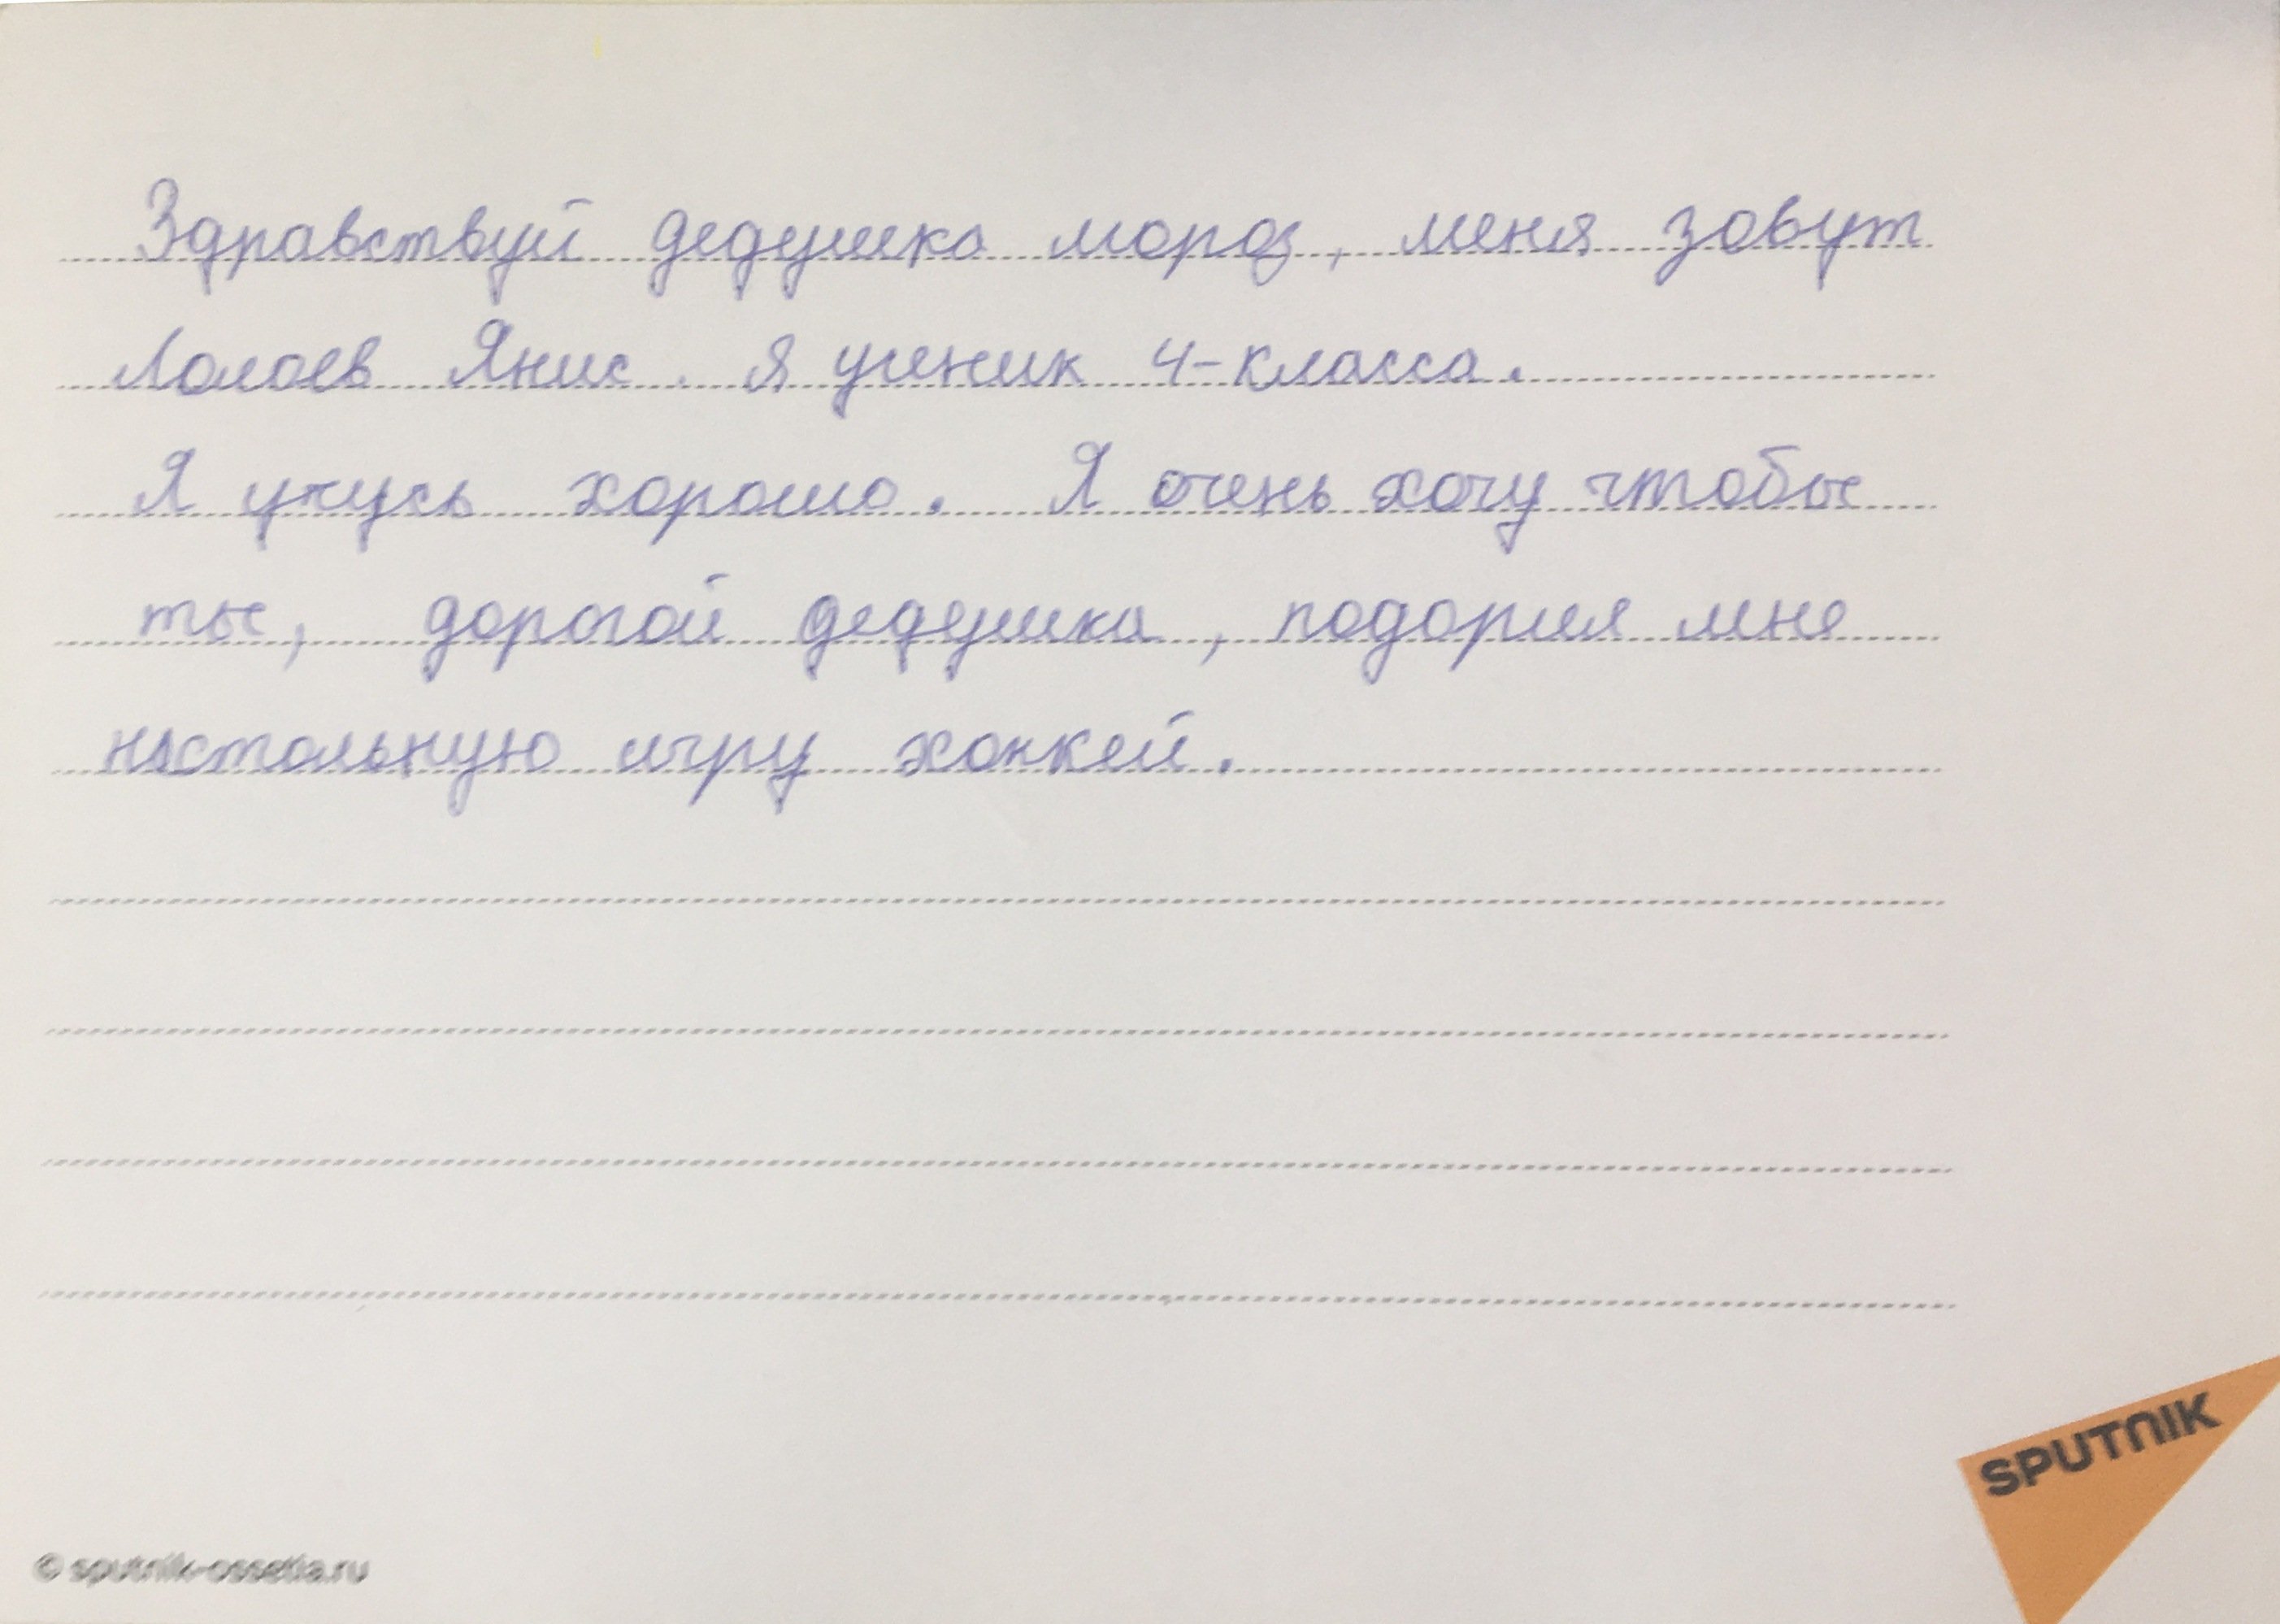 Здравствуй дедушка мороз, меня зовут
Лолаев Янис. я ученик 4-класса.
Я учусь хорошо. Я очень хочу чтобы
ты, дорогой дедушка, подорил мне
настольную игру хоккей.
SPUTNIK
© sputnik-ossetia.ru